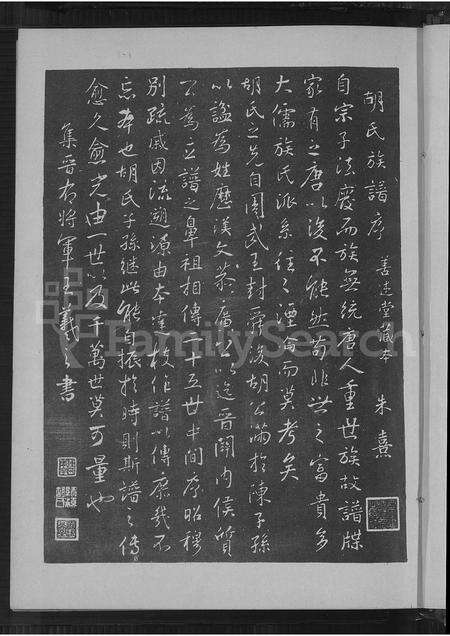 胡氏族譜序 善述堂藏本 朱熹
自宗子法廢而族無統唐人重世族故譜牒
家有之唐以後不能然苟非世之富貴多
大儒族氏派系往之湮侖而莫考矣
胡氏之先自周武王封舜後胡公滿於陳子孫
以謚為姓歷漢文恭廣公以迄晉關內侯質
公為立譜之鼻祖相傳二十五世中間序昭穆
別疏戚因流遡源由本達枝作譜以傳庶幾不
忘本也胡氏子孫繼此能自振於時則斯譜之傳
愈久愈光由一世以及千萬世莫可量也
集晉右將軍王羲之書
FamilySearch